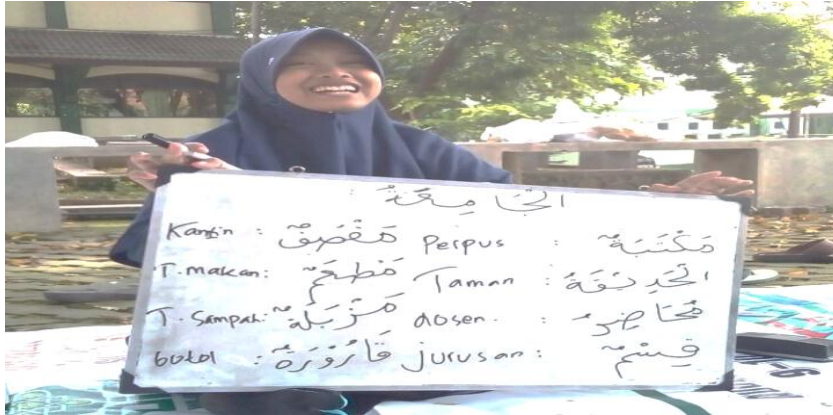 الْجَامِعَةُ :
Kantin : مَقْصَفٌ Perpus : مَكْتَبَةٌ
T. makan : مَطْعَمٌ Taman : الْحَدِيْقَةُ
T. Sampah : مَزْبَلَةٌ dosen : مُحَاضِرٌ
botol : قَارُوْرَةٌ jurusan : قِسْمٌ